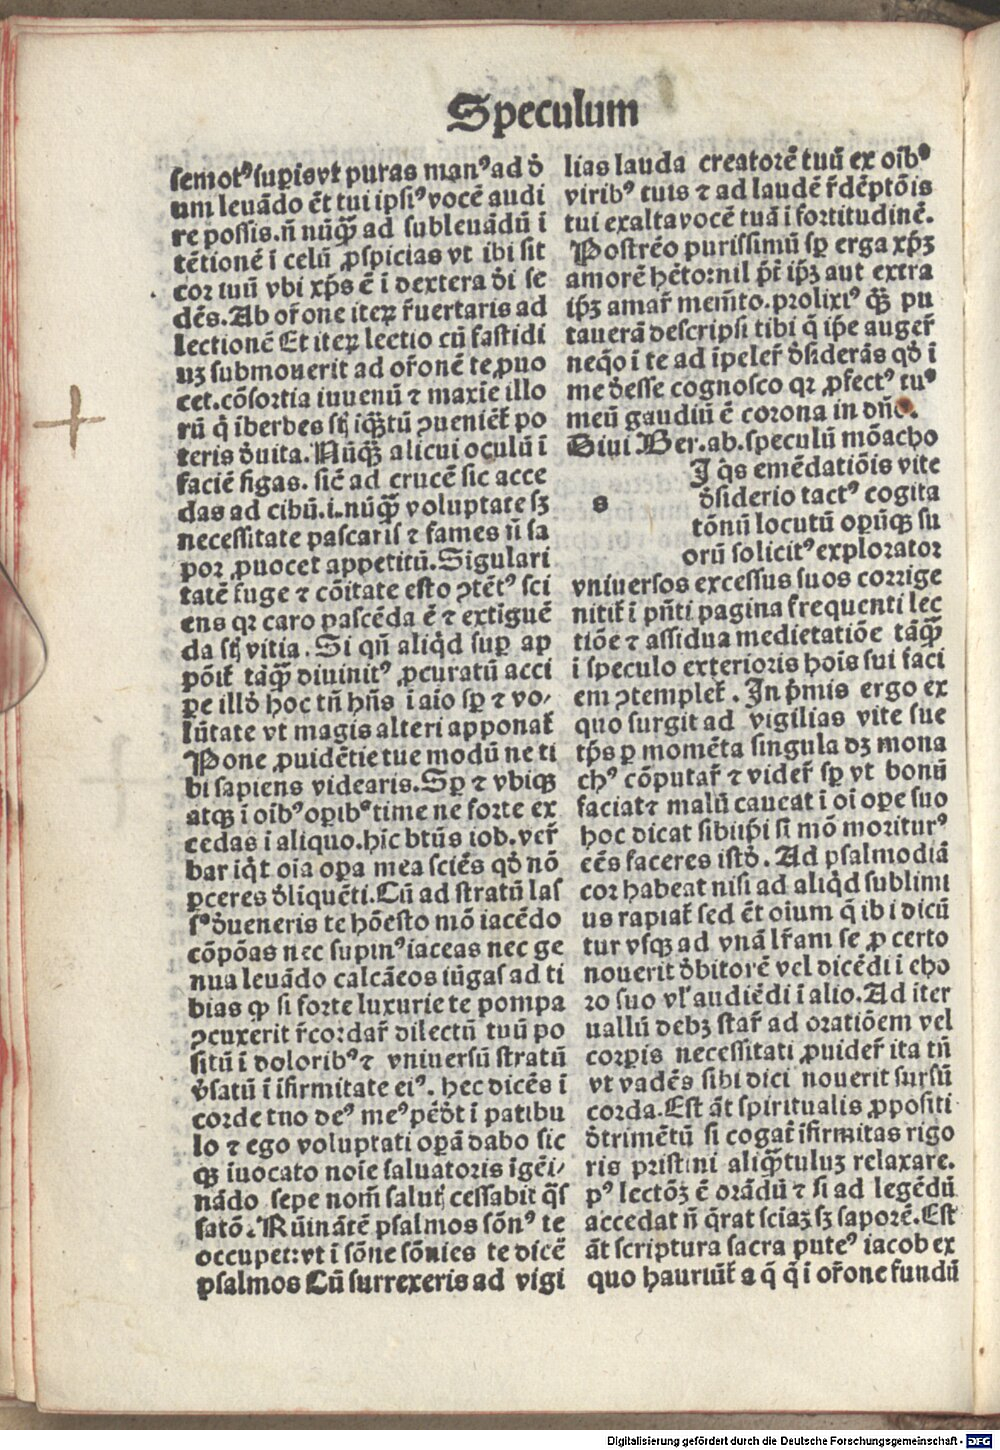 Speculum
semotꝰ suꝑis vt puras manꝰ ad d̄
um leuādo ēt tui ipsiꝰ vocē audi
re possis. n̄ nūqᷓ ad subleuādū i
tētionē ī celū ꝓspicias vt ibi sit
cor tuū vbi xp̄s ē ī dextera dī se
dēs. Ab or̄one iteꝝ r̄uertaris ad
lectionē Et iteꝝ lectio cū fastidi
uꝫ submouerit ad or̄onē te ꝓuo
cet. cōsortia iuuenū ⁊ maxīe illo
rū q̄ iberbes sūt iqᷓtū ꝯueniēt̄ po
teris d̄uita. Nūqᷓ alicui oculū ī
faciē figas. sic̄ ad crucē sic acce
das ad cibū .i. nūqᷓ voluptate sꝫ
necessitate pascaris ⁊ fames n̄ sa
por ꝓuocet appetitū. Sigulari
tatē fuge ⁊ cōitate esto ꝯtētꝰ sci
ens qꝛ caro pascēda ē ⁊ extīguē
da sūt vitia. Si qn̄ aliq̇d suꝑ ap
pōit̄ tāqᷓ diuinitꝰ ꝓcuratū acci
pe illd̄ hoc tn̄ hn̄s ī aīo sꝑ ⁊ vo-
lūtate vt magis alteri apponat̄
Pone ꝓuidētie tue modū ne ti
bi sapiens videaris. Sꝑ ⁊ vbiqꝫ
atqꝫ ī oībꝰ oꝑibꝰ time ne forte ex
cedas ī aliquo. hic btūs iob. ver̄
bar iq̇t oīa oꝑa mea sciēs qd̄ nō
ꝑceres d̄līquēti. Cū ad stratū las
sꝰ d̄ueneris te hōesto mō iacēdo
cōpōas nec supinꝰ iaceas nec ge
nua leuādo calcāeos iūgas ad ti
bias qꝫ si forte luxurie te pompa
ꝯcuxerit r̄cordar̄ dilectū tuū po
sitū ī doloribꝰ ⁊ vniuersū stratū
v̄satū ī ifirmitate eiꝰ. hec dicēs ī
corde tuo deꝰ meꝰ pēdt̄ ī patibu
lo ⁊ ego voluptati oꝑā dabo sic
qꝫ īuocato noīe saluatoris īgēi-
nādo sepe nom̄ salut̄ cessabit q̄s
satō. Rūināte psalmos sōnꝰ te
occupet: vt ī sōne sōnies te dicē
psalmos Cū surrexeris ad vigi
lias lauda creatorē tuū ex oībꝰ
viribꝰ tuis ⁊ ad laudē r̄dēptōis
tui exalta vocē tuā ī fortitudinē.
Postrēo purissimū sꝑ erga xp̄ꝫ
amorē hēto: nil p̄t̄ ip̄ꝫ aut extra
ip̄ꝫ amar̄ mem̄to. prolixiꝰ qᷓꝫ pu
taueraͫ descripsi tibi q̄ ip̄e auger̄
neq̇o ī te ad īpeler̄ d̄siderās qd̄ ī
me d̄esse cognosco qꝛ ꝓfectꝰ tuꝰ
meū gaudiū ē corona in dn̄o.
Diui Ber. ab. speculū mōacho
s I q̇s emēdatiōis vite
d̄siderio tactꝰ cogita
tōnū locutū oꝑūqꝫ su
orū solicitꝰ explorator
vniuersos excessus suos corrige
nitit̄ ī pn̄ti pagina frequenti lec
tiōe ⁊ assidua medietatiōe tāqᷓ
ī speculo exterioris hoīs sui faci
em ꝯtemplet̄. In p̄mis ergo ex
quo surgit ad vigilias vite sue
tp̄s ꝑ momēta singula dꝫ mona
chꝰ cōputar̄ ⁊ vider̄ sꝑ vt bonū
faciat ⁊ malū caueat ī oī oꝑe suo
hoc dicat sibi ip̄i si mō moriturꝰ
eēs faceres istd̄. Ad psalmodiā
cor habeat nisi ad aliq̇d sublimi
us rapiat̄ sed ēt oīum q̄ ibi dicū
tur vsqꝫ ad vnā lr̄am se ꝓ certo
nouerit d̄bitorē vel dicēdi ī cho
ro suo vl̄ audiēdi ī alio. Ad iter
uallū debꝫ star̄ ad oratiōem vel
corꝑis necessitati ꝓuider̄ ita tn̄
vt vadēs sibi dici nouerit sursū
corda. Est āt spiritualis ꝓpositi
d̄trimētū si cogat̄ ifirmitas rigo
ris pristini aliqᷓtuluꝫ relaxare.
pꝰ lectōꝫ ē orādū ⁊ si ad legēdū
accedat n̄ q̄rat sciaꝫ sꝫ saporē. Est
āt scriptura sacra puteꝰ iacob ex
quo hauriūt̄ aq̄ q̄ ī or̄one fundū
Digitalisierung gefördert durch die Deutsche Forschungsgemeinschaft - DFG